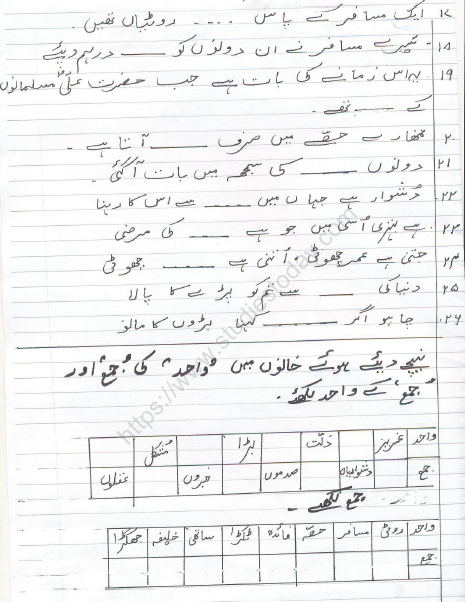 ۱۷ ایک مسافر کے پاس ۔۔۔۔ روٹیاں تھیں۔
۱۸۔ تیسرے مسافر نے ان دونوں کو ـــــ درہم دیئے
۱۹. یہ اس زمانے کی بات ہے جب حضرت علیؓ مسلمانوں
کے ــــــ تھے۔
۲۰ تمھارے حصّے میں صرف ــــــ آتا ہے۔
۲۱ دونوں ـــــ کی سمجھ میں بات آگئی۔
۲۲. دُشوار ہے جہاں میں ـــــ سے اس کا رہنا
۲۳. ہے بہتری اُسی میں جو ہے ـــــ کی مرضی
۲۴ جتنی ہے عمر چھوٹی، اُتنی ہے ـــــ چھوٹی
۲۵ دنیا کی ـــــ سے تم کو پڑے گا پالا
۲۶. چاہو اگر ــــــ کہنا بڑوں کا مانو
نیچے دیئے ہوئے خالوں میں "واحد" کی "جمع" اور
"جمع" کے واحد لکھئے۔
واحد عزیز ذلّت بڑا مُشکل
جمع دشواریاں صدموں خبروں عقلوں
جمع لکھئے۔
واحد روٹی مسافر حصّہ فائدہ ٹکڑا ساتھی خلیفہ جھگڑا
جمع
https://www.studiestoday.com